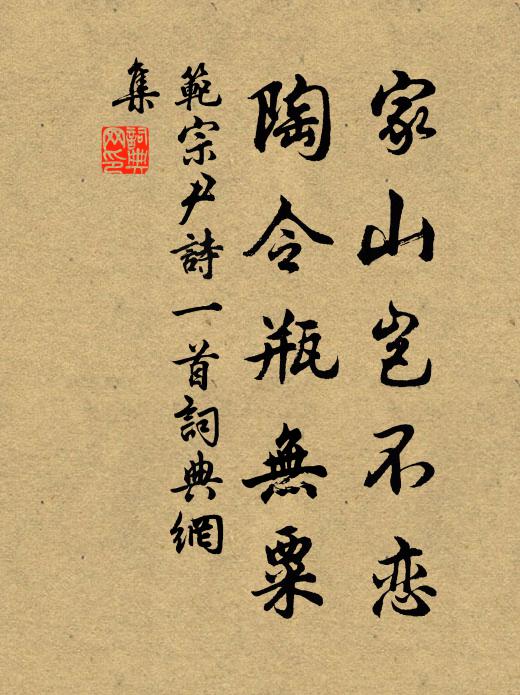 家山岂不恋
陶令瓶無粟
範宗尹詩一首詞典網
集
詞典网印